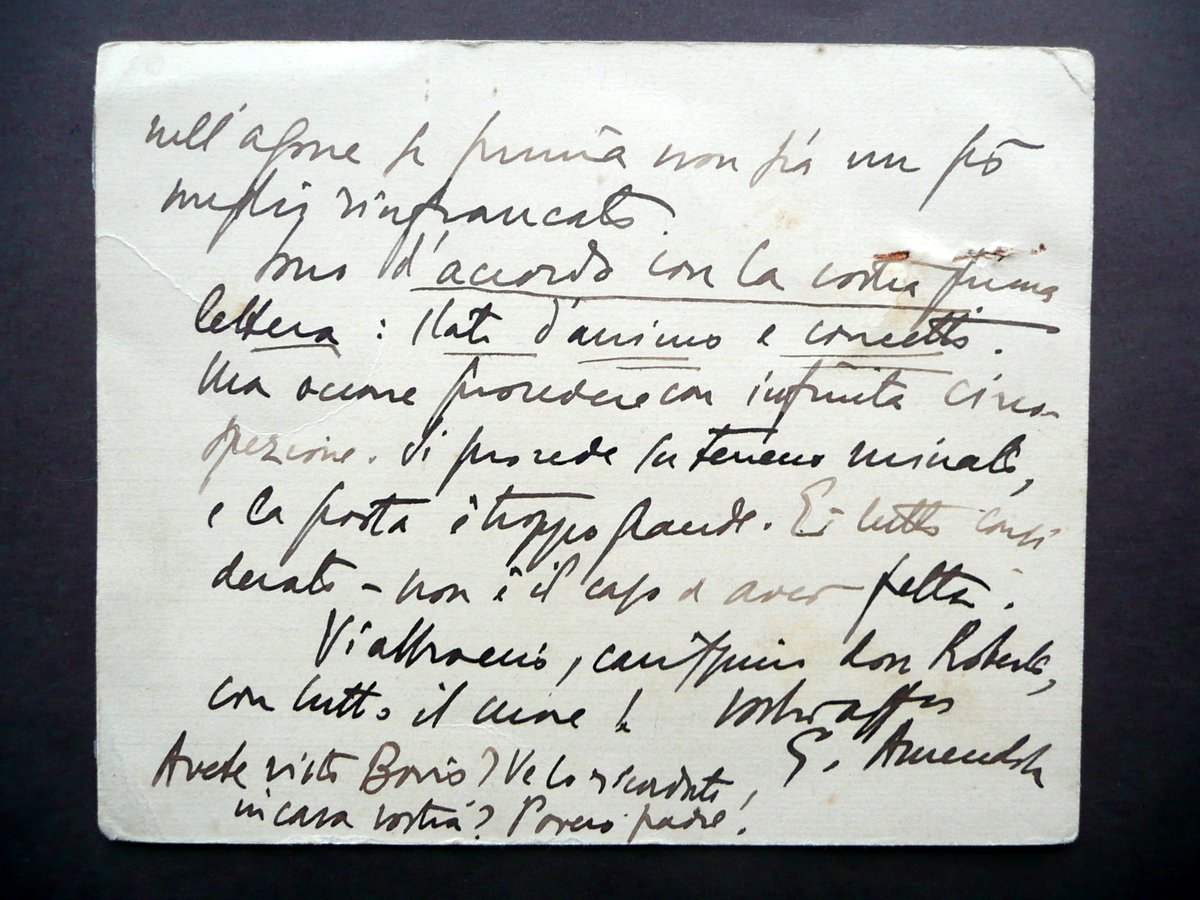 nell'agone se prima non sia un pò
meglio rinfrancato.
Sono d'accordo con la vostra prima
lettera: stati d'animo e concetti.
Ma occorre procedere con infinita circo-
spezione. Si procede su terreno minato,
e la posta è troppo grande. E tutto consi
derato - non è il caso d aver fretta.
Vi abbraccio, carissimo don Roberto,
con tutto il cuore! vostro aff
G. Amendola
Avete visto Boris? Ve lo ricordate,
in casa vostra? Povero padre!